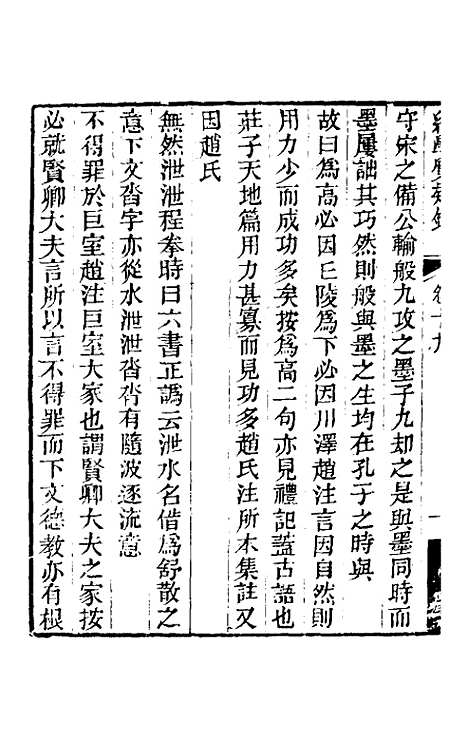 守宋之備公輸般九攻之墨子九却之是與墨同時而
墨屢詘其巧然則般與墨之生均在孔子之時與
故曰爲高必因丘陵爲下必因川澤趙注言因自然則
用力少而成功多矣按爲高二句亦見禮記蓋古語也
莊子天地篇用力甚寡而見功多趙氏注所本集註又
因趙氏
無然泄泄程拳時曰六書正譌云泄水名借爲舒散之
意下文沓字亦從水泄泄沓沓有隨波逐流意
不得罪於巨室趙注巨室大家也謂賢卿大夫之家按
必就賢卿大夫言所以言不得罪而下文德教亦有根